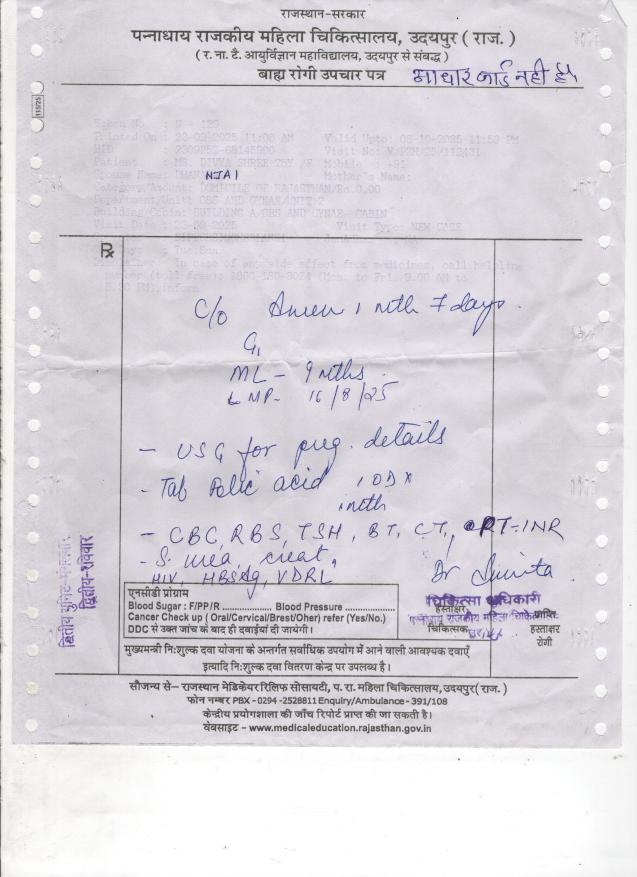 राजस्थान-सरकार
पन्नाधाय राजकीय महिला चिकित्सालय, उदयपुर ( राज. )
( र. ना. टै. आयुर्विज्ञान महाविद्यालय, उदयपुर से संबद्ध )
बाह्य रोगी उपचार पत्र आधार कार्ड नही है।
115/25
Token No : N - 123
Printed On : 22-09-2025 11:08 AM Valid Upto:
HID : Visit No:
Patient : MS. DIVYA SHREE Mobile : +91
Spouse Name: Mother's Name:
Category/Amount: DOMICILE OF RAJASTHAN/Rs.0.00
Department/Unit: OBS AND GYNAE/UNIT-2
Building/Cabin: BUILDING A/OBS AND GYNAE CABIN
Visit Type: NEW CASE
In case of any side effect from medicines, call helpline
number (toll free): 1800-180-3024 (Mon. to Fri. 9.00 AM to
inform
Rx
C/o Amen 1 mth 7 days
G1
ML - 9 mths
LMP- 16/8/25
- USG for preg. details
- Tab Folic acid 1 OD x
1 mth
- CBC, RBS, TSH, BT, CT, PRT-INR
- S. urea, creat,
HIV, HBSAg, VDRL
Dr Sunita
द्वितीय युनिट-मंगलवार
द्वितीय-रविवार
एनसीडी प्रोग्राम
Blood Sugar : F/PP/R ................ Blood Pressure ..................
Cancer Check up ( Oral/Cervical/Brest/Oher) refer (Yes/No.)
DDC से उक्त जांच के बाद ही दवाईयां दी जायेगी।
चिकित्सा अधिकारी
हस्ताक्षर
पन्नाधाय राजकीय महिला चिकि. प्राप्ति
चिकित्सक हस्ताक्षर
रोगी
मुख्यमंत्री निःशुल्क दवा योजना के अन्तर्गत सर्वाधिक उपयोग में आने वाली आवश्यक दवाएँ
इत्यादि निःशुल्क दवा वितरण केन्द्र पर उपलब्ध है।
सौजन्य से– राजस्थान मेडिकेयर रिलिफ सोसायटी, प. रा. महिला चिकित्सालय,उदयपुर( राज.)
फोन नम्बर PBX - 0294 -2528811 Enquiry/Ambulance - 391/108
केन्द्रीय प्रयोगशाला की जाँच रिपोर्ट प्राप्त की जा सकती है।
वेबसाइट - www.medicaleducation.rajasthan.gov.in